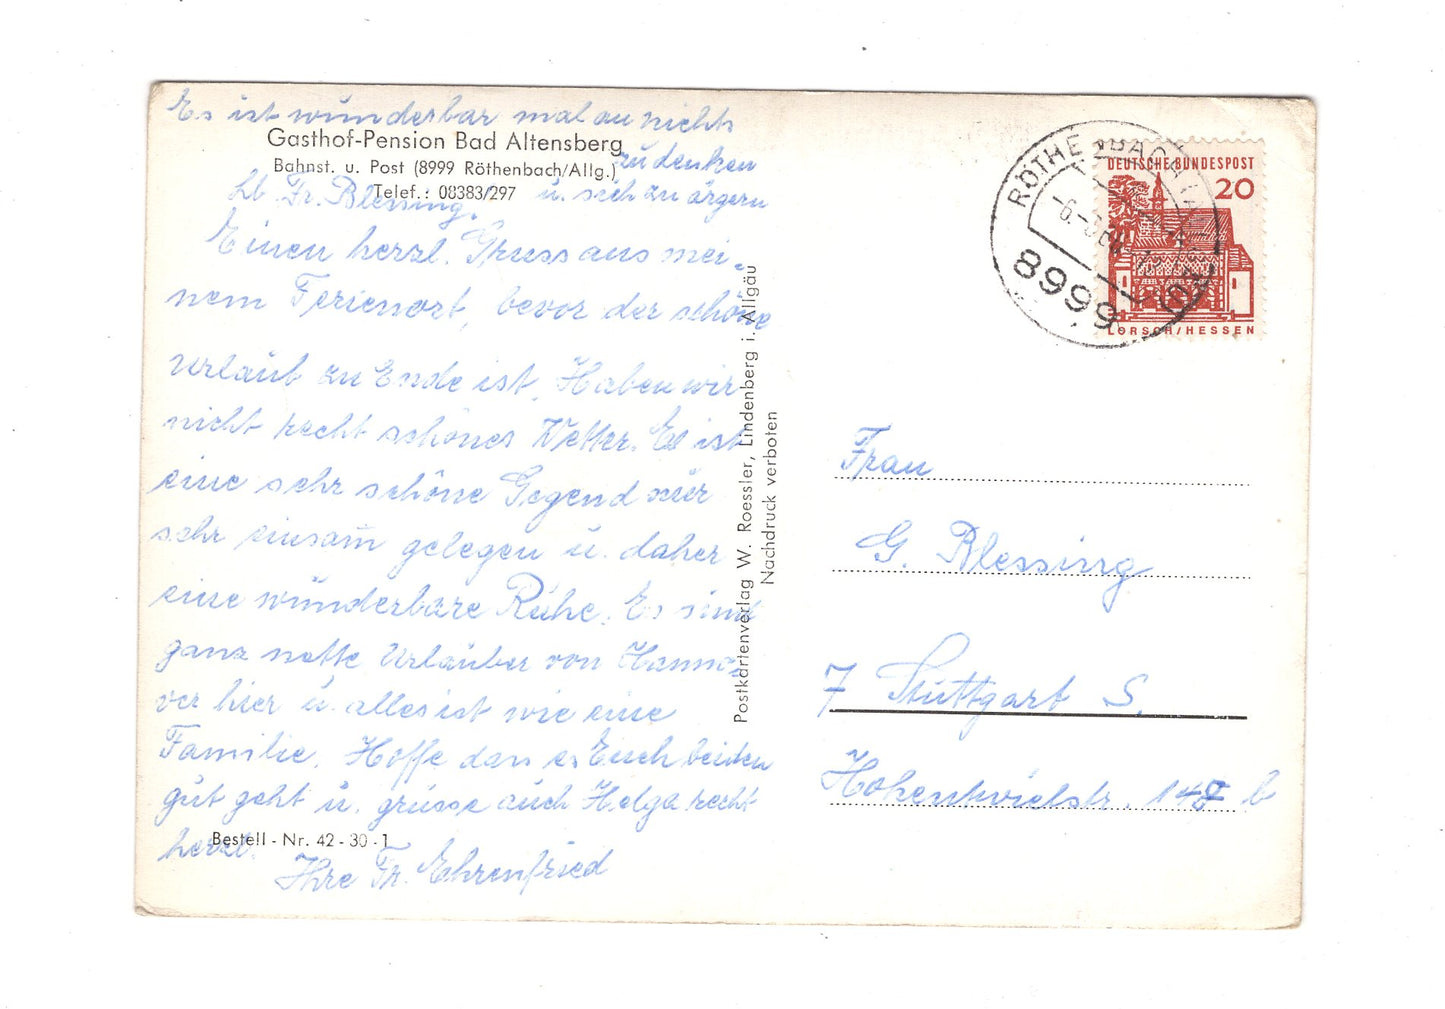 Es ist wunderbar mal an nichts
zu denken
u. sich zu ärgern
Gasthof-Pension Bad Altensberg
Bahnst. u. Post (8999 Röthenbach/Allg.)
Telef.: 08383/297
Lb. Fr. Blessing.
Einen herzl. Gruss aus mei-
nem Ferienort, bevor der schöne
Urlaub zu Ende ist. Haben wir
nicht recht schönes Wetter. Es ist
eine sehr schöne Gegend nur
sehr einsam gelegen u. daher
eine wunderbare Ruhe. Es sind
ganz nette Urlauber von Hanno-
ver hier u. alles ist wie eine
Familie. Hoffe dass es Euch beiden
gut geht u. grüsse auch Helga recht
herzl.
Ihre Fr. Ehrenfried
Bestell-Nr. 42-30-1
Postkartenverlag W. Roessler, Lindenberg i. Allgäu
Nachdruck verboten
RÖTHENBACH (ALLGÄU)
8999
DEUTSCHE BUNDESPOST
20
LORSCH/HESSEN
Frau
G. Blessing
7 Stuttgart S.
Hohentwielstr. 147 b